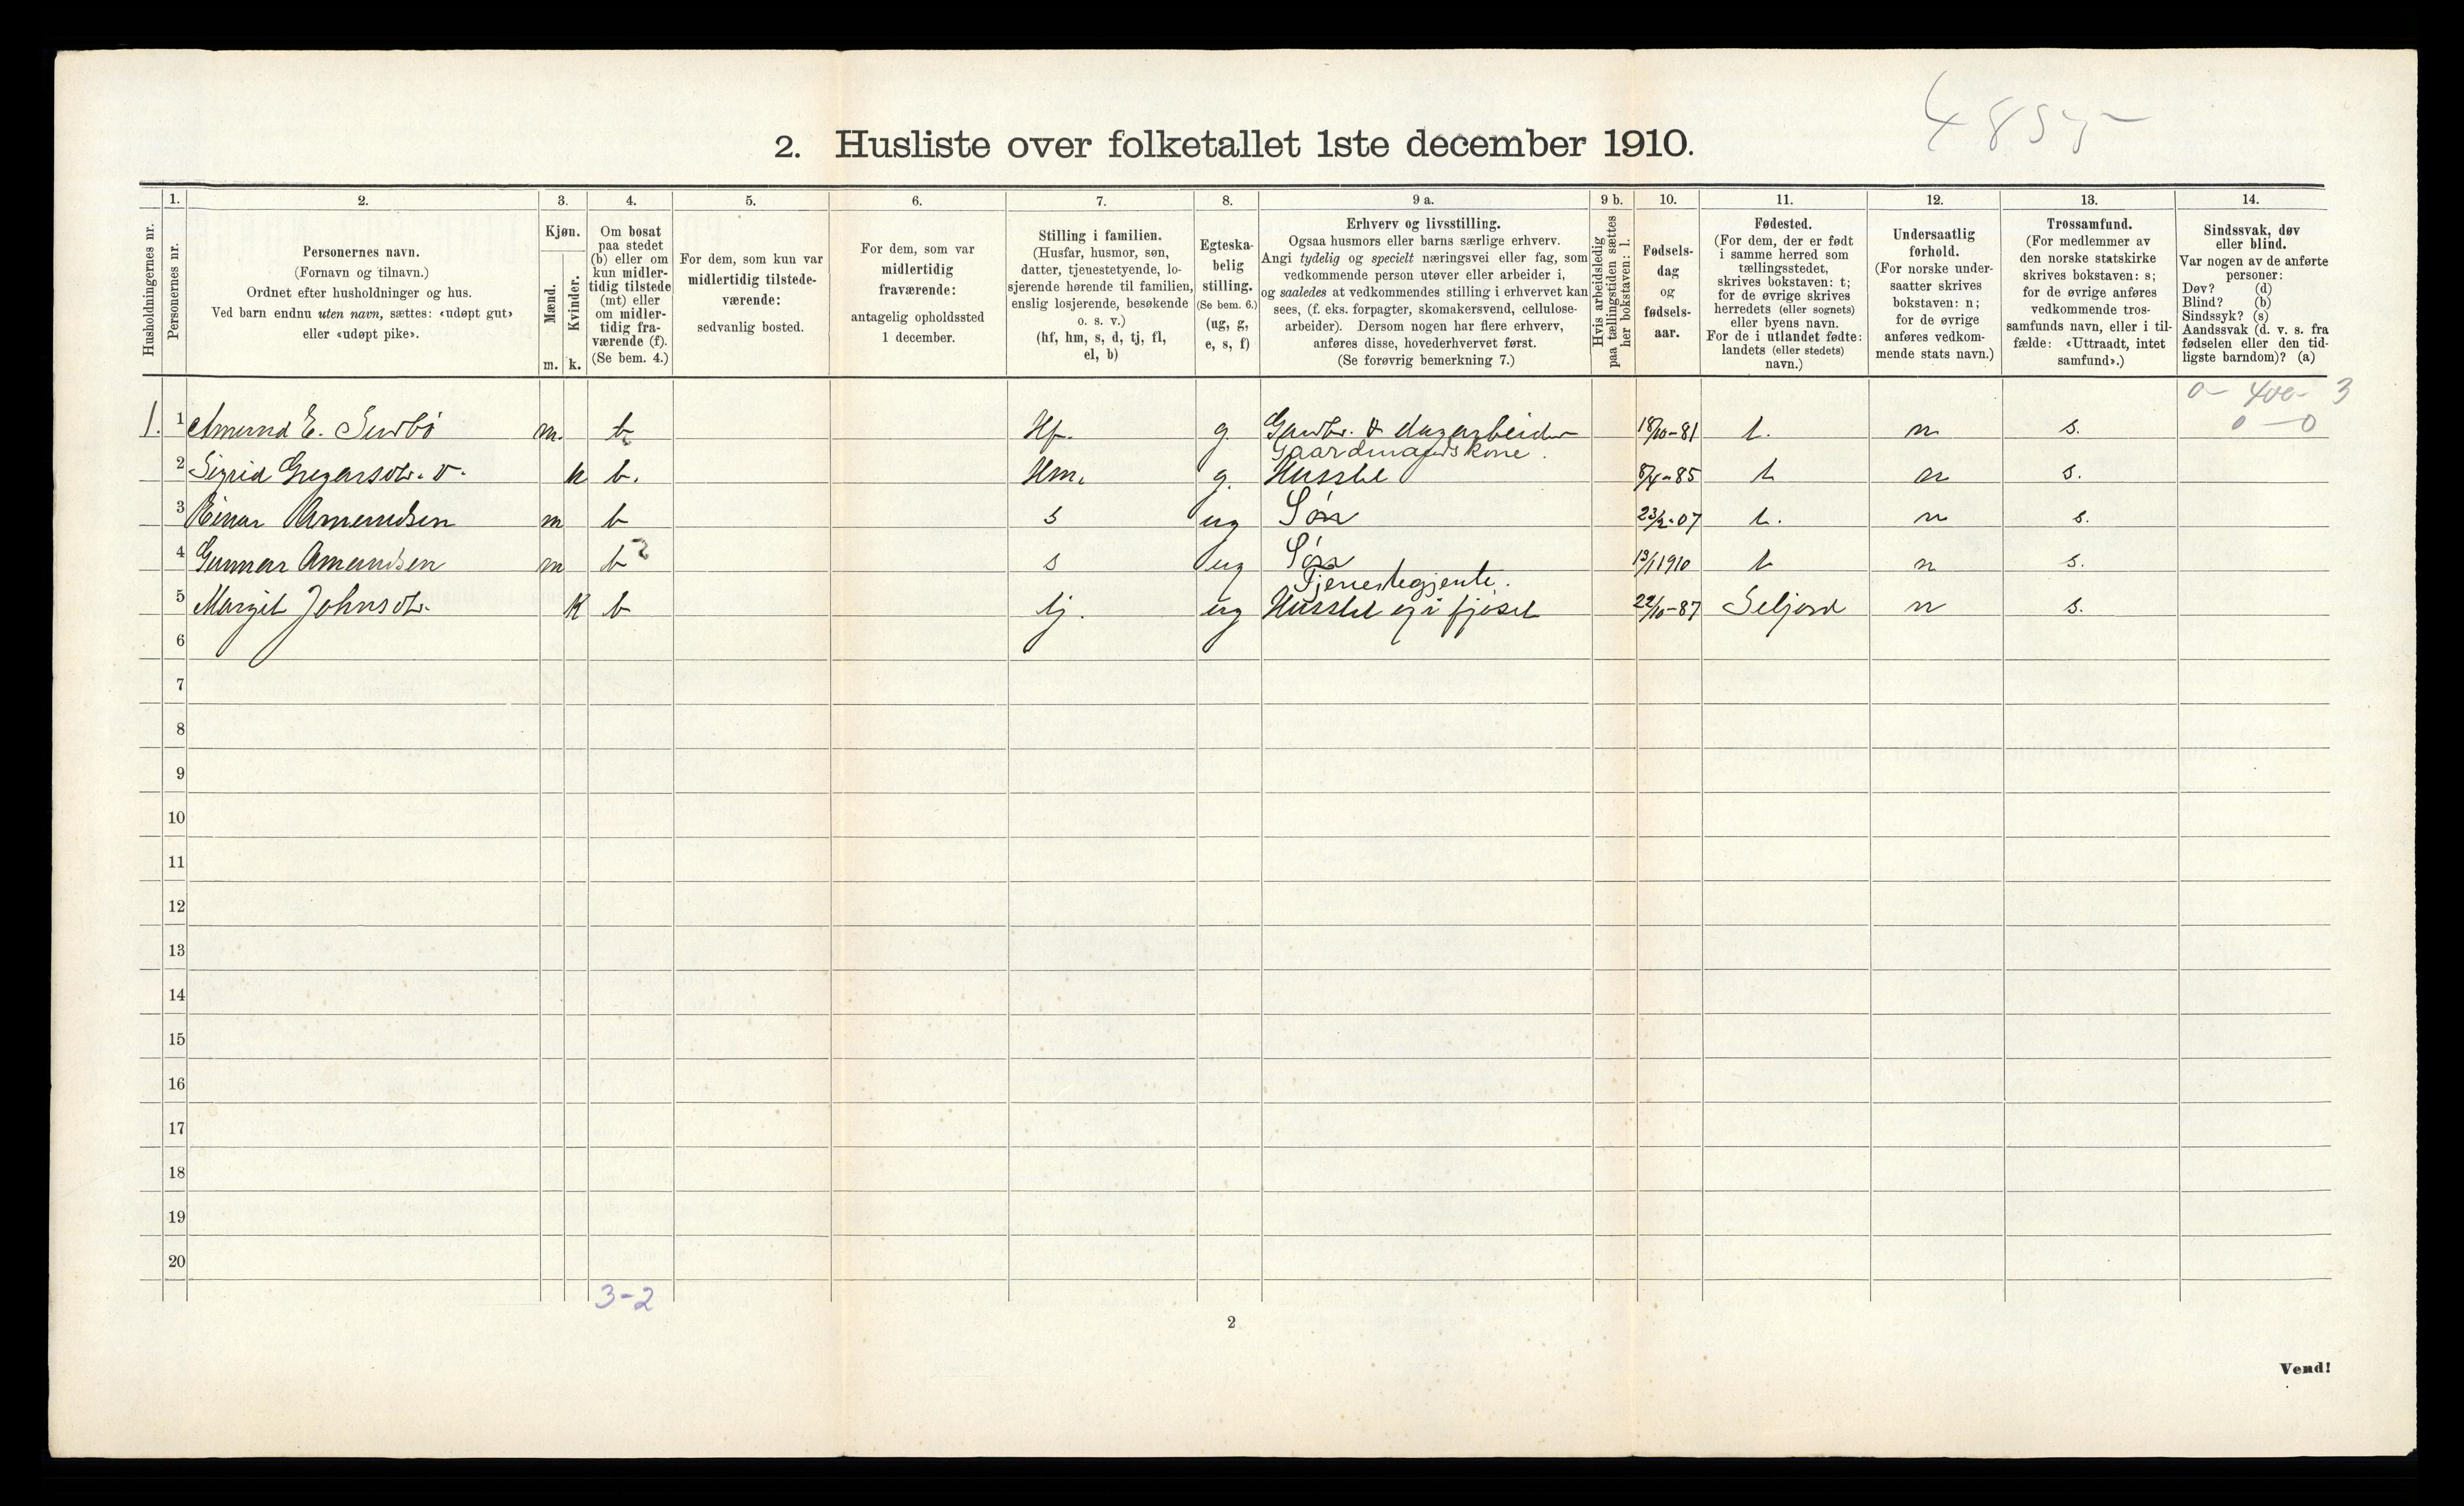 485-
2. Husliste over folketallet 1ste december 1910.
Husholdningernes nr.
1.
Personernes nr.
2.
Personernes navn.
(Fornavn og tilnavn.)
Ordnet efter husholdninger og hus.
Ved barn endnu uten navn, sættes: «udøpt gut»
eller «udøpt pike».
3.
Kjøn.
Mænd.
Kvinder.
m. k.
4.
Om bosat
paa stedet
(b) eller om
kun midler-
tidig tilstede
(mt) eller
om midler-
tidig fra-
værende (f).
(Se bem. 4.)
5.
For dem, som kun var
midlertidig tilstede-
værende:
sedvanlig bosted.
6.
For dem, som var
midlertidig
fraværende:
antagelig opholdssted
1 december.
7.
Stilling i familien.
(Husfar, husmor, søn,
datter, tjenestetyende, lo-
sjerende hørende til familien,
enslig losjerende, besøkende
o. s. v.)
(hf, hm, s, d, tj, fl,
el, b)
8.
Egteska-
belig
stilling.
(Se bem. 6.)
(ug, g,
e, s, f)
9 a.
Erhverv og livsstilling.
Ogsaa husmors eller barns særlige erhverv.
Angi tydelig og specielt næringsvei eller fag, som
vedkommende person utøver eller arbeider i,
og saaledes at vedkommendes stilling i erhvervet kan
sees, (f. eks. forpagter, skomakersvend, cellulose-
arbeider). Dersom nogen har flere erhverv,
anføres disse, hovederhvervet først.
(Se forøvrig bemerkning 7.)
9 b.
Hvis arbeidsledig
paa tællingstiden sættes
her bokstaven: l.
10.
Fødsels-
dag
og
fødsels-
aar.
11.
Fødested.
(For dem, der er født
i samme herred som
tællingsstedet,
skrives bokstaven: t;
for de øvrige skrives
herredets (eller sognets)
eller byens navn.
For de i utlandet fødte:
landets (eller stedets)
navn.)
12.
Undersaatlig
forhold.
(For norske under-
saatter skrives
bokstaven: n;
for de øvrige
anføres vedkom-
mende stats navn.)
13.
Trossamfund.
(For medlemmer av
den norske statskirke
skrives bokstaven: s;
for de øvrige anføres
vedkommende tros-
samfunds navn, eller i til-
fælde: «Uttraadt, intet
samfund».)
14.
Sindssvak, døv
eller blind.
Var nogen av de anførte
personer:
Døv? (d)
Blind? (b)
Sindssyk? (s)
Aandssvak (d. v. s. fra
fødselen eller den tid-
ligste barndom)? (a)
0- 400- 3
0 - 0
1. 1 Amund E. m. b Hf. g. Gaardbr. & dagarbeider 18/10-81 t. n s.
Gaardmandskone.
2 Sigrid Gregarsdtr. v. k b. Hm. g. Husstel 8/4-85 t n s.
3 Einar Amundsen m b s ug Søn 23/2-07 t. n s.
4 Gunnar Amundsen m b s ug Søn 13/1 1910 t n s.
Tjenestegjente.
5 Margit Johnsdtr. k b tj. ug Husstel og i fjøset 22/10-87 Seljord n s.
6
7
8
9
10
11
12
13
14
15
16
17
18
19
20
3-2
2
Vend!